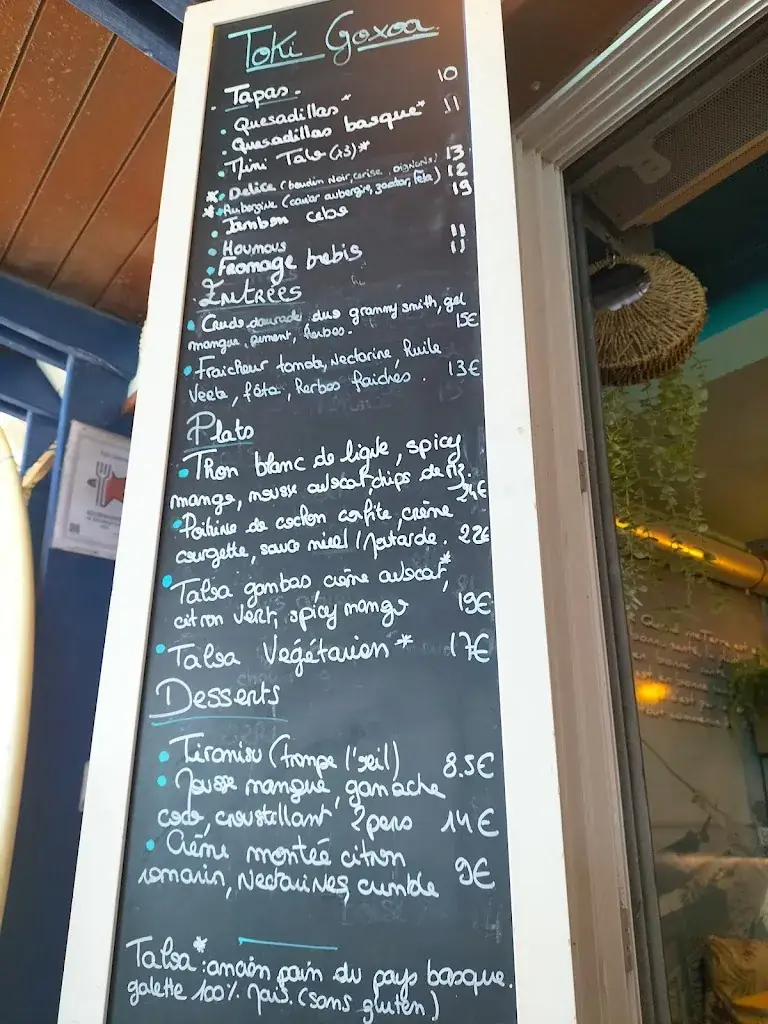 Toki Goxoa
Tapas.
10
• Quesadillas*
• Quesadillas basque* 11
• Mini Talo (x3)*
* Delice (boudin noir, cerise, oignons) 13
* Aubergine (caviar aubergine, zaatar, feta) 12
• Jambon cebo 19
• Houmous 11
• Fromage brebis 11
Entrées
• Crudo daurade, duo granny smith, gel
mangue, piment, herbes. 15€
• Fraicheur tomate, Nectarine, huile
verte, fêta, herbes fraiches. 13€
Plats
• Thon blanc de ligne, spicy
mango, mousse avocat, chips de riz.
24€
• Poitrine de cochon confite, crème
courgette, sauce miel / moutarde. 22€
• Talsa gambas, crème avocat*,
citron vert, spicy mango 19€
• Talsa Végétarien* 17€
Desserts
• Tiramisu (trompe l'œil) 8.5€
• Mousse mangue, ganache
coco, croustillant 2pers 14€
• Crème montée citron
romarin, Nectarines, crumble 9€
Talsa*: ancien pain du pays basque.
galette 100% Maïs. (sans gluten)